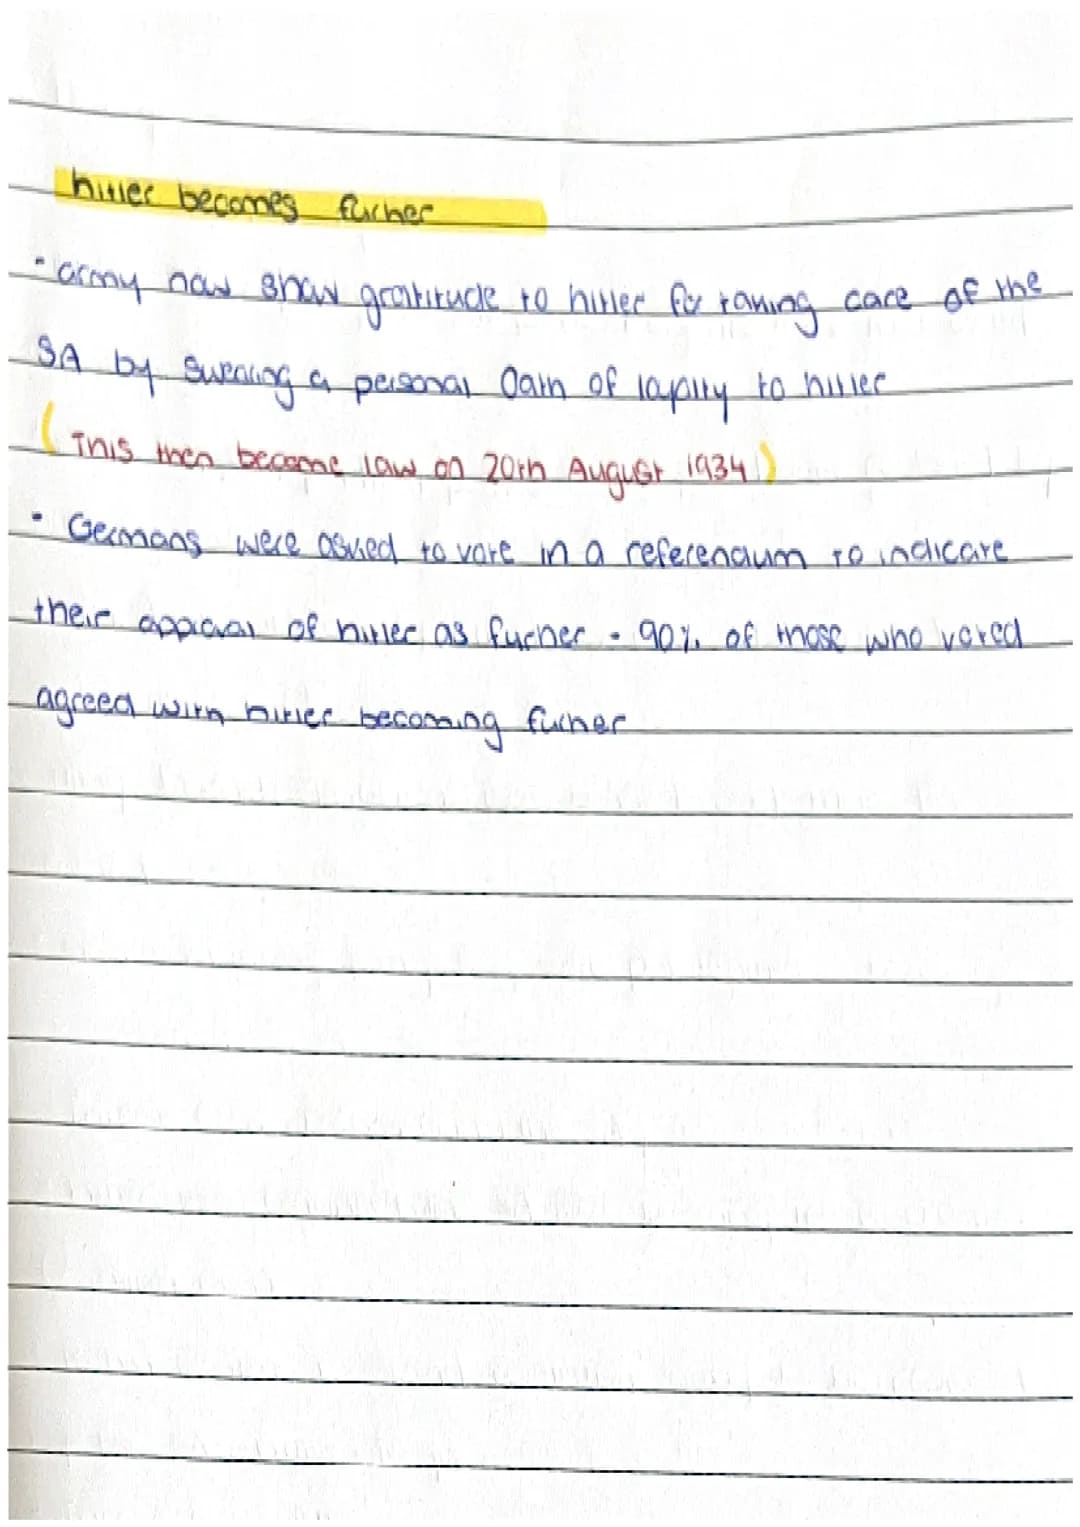 hitler becomes furher
• army now show gratitude to hitler for taking care of the
SA by swearing a personal Oath of loyalty to hitler
(This then became law on 20th August 1934)
• Germans were asked to vote in a referendum to indicate
their approval of hitler as furher - 90% of those who voted
agreed with hitler becoming furher